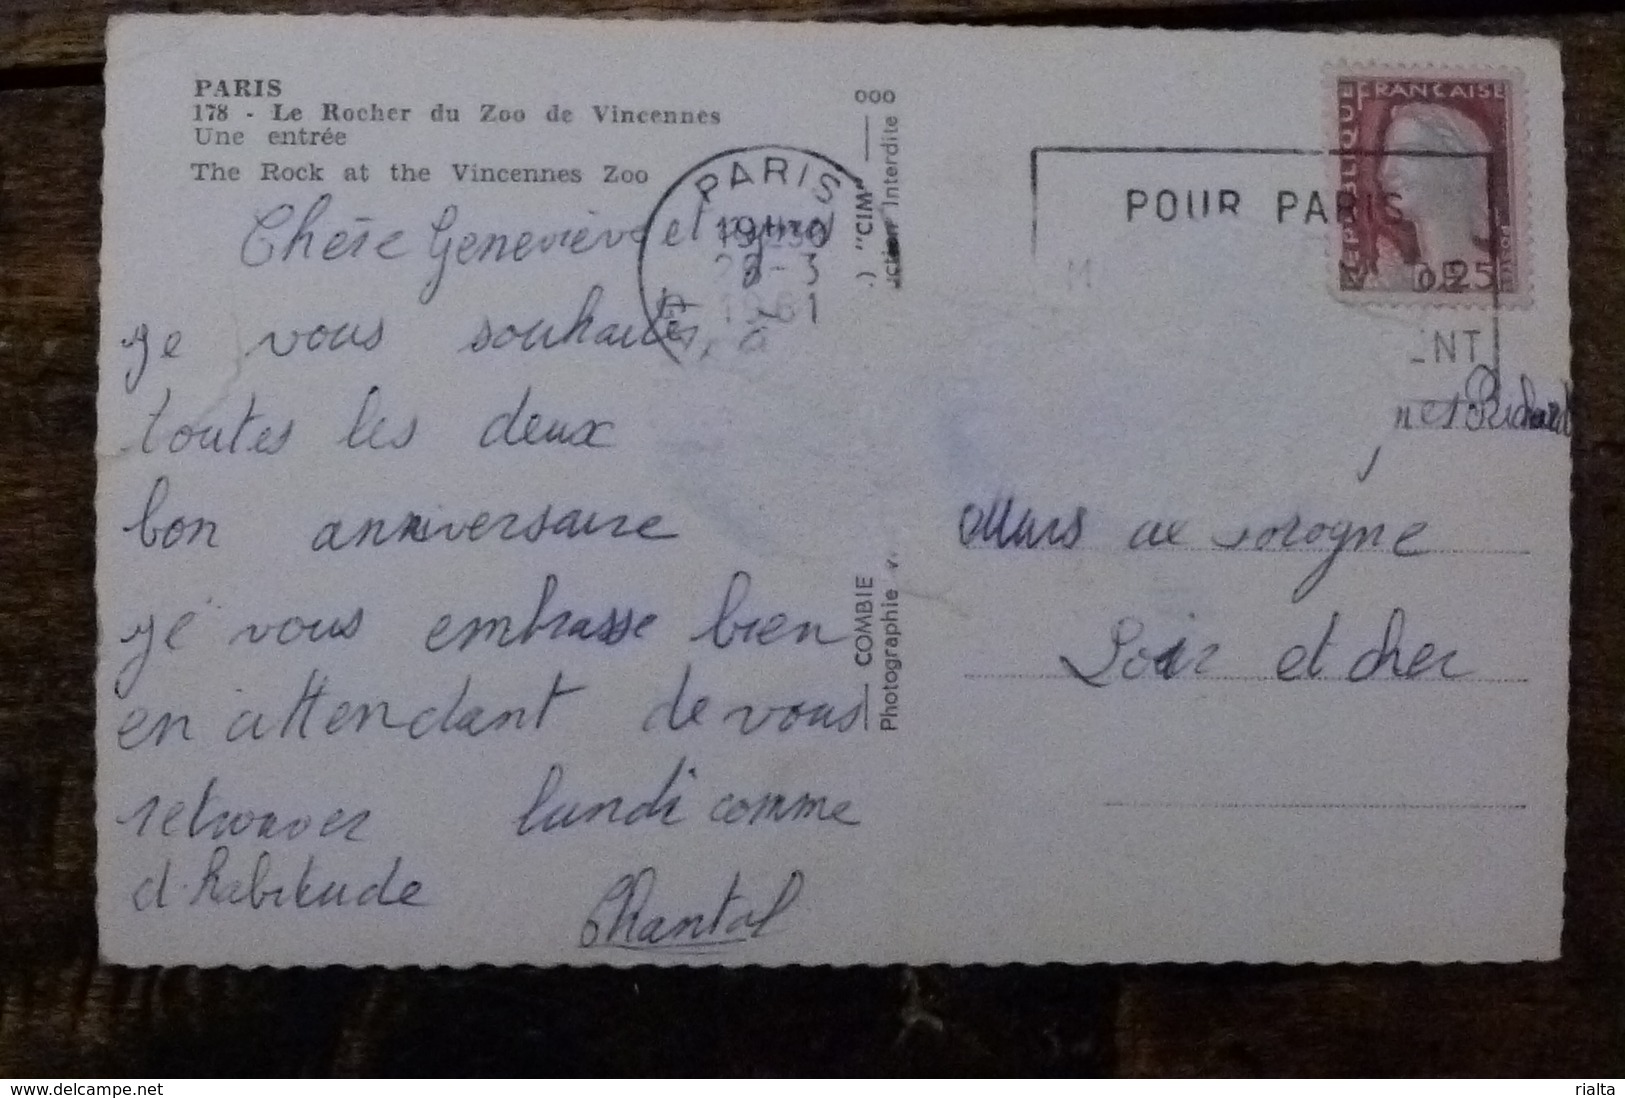 PARIS
178 - Le Rocher du Zoo de Vincennes
Une entrée
The Rock at the Vincennes Zoo
Chère Geneviève et
je vous souhaites, à
toutes les deux
bon anniversaire
je vous embrasse bien
en attendant de vous
retrouver lundi comme
d'habitude
Chantal
PARIS
19H30
28-3
1961
000
"CIM"
Interdite
COMBIE
Photographie
POUR PARIS
M
ENT
REPUBLIQUE FRANCAISE
0,25
POSTES
Richard
Mars de Sologne
Loir et cher
www.delcampe.net
rialta